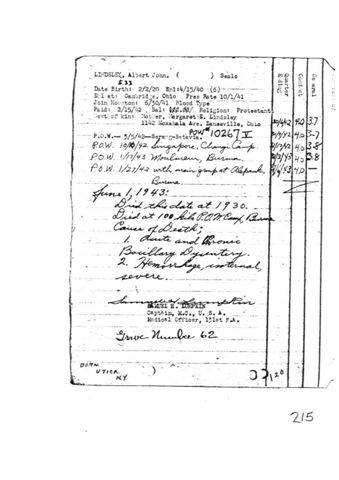 LINDSLEY, Albert John. ( ) Sealo
533
Date Birth: 2/2/20 Enl:4/15/40 (6)
Enl at: Cambridge, Ohio Pres Rate 10/1/41
Join Houston: 6/30/41 Blood Type
Paid: 2/15/42 Bal: Religion: Protestant
Next of kin: Mother, Margaret E. Lindsley
1142 Moxahala Ave. Zanesville, Ohio
POW# 10267 V
P.O.W.— 5/5/42—Serang-Batavia.
P.O.W. 10/10/42 Singapore, Changi Camp
P.O.W. 1/17/43 Moulmein, Burma.
P.O.W. 1/27/43 with main group at
Burma
June 1, 1943:
Died this date at 1930.
Died at 100 kilo P.O.W. Camp, Burma
Cause of Death;
1. Acute and Chronic
Bacillary Dysentery.
2. Hemorrhage, internal,
severe.
SAMUEL H. LUMPKIN
Captain, M.C., U. S. A.
Medical Officer, 131st F.A.
Grave Number 62
BORN
UTICA
N.Y.
Quarter Ending
Conduct
General
4.0 3.7
4.0 3.7
4.0 3.8
4.0 3.8
4.0 —
215